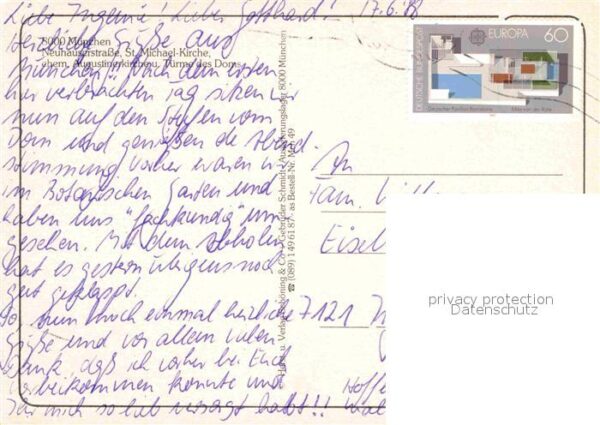 Liebe Ingenie! Lieber Gotthard! 17.6.88
8000 München
Neuhauserstraße, St. Michael-Kirche,
ehem. Augustinerkirche u. Türme des Doms
Herzliche Grüße aus
München! Nach dem ersten
hier verbrachten Tag sitzen wir
nun auf den Stufen vom
Dom und genießen die Abend-
stimmung. Vorher waren wir
im Botanischen Garten und
haben uns "fachkundig" um-
gesehen. Mit dem Abholen
hat es gestern übrigens noch
gut geklappt.
So nun noch einmal herzliche
Grüße und vor allem vielen
Dank, daß ich vorher bei Euch
vorbeikommen konnte und
Ihr mich so lieb versorgt habt!!
DEUTSCHE BUNDESPOST
EUROPA 60
Deutscher Pavillon Barcelona
Mies van der Rohe
Verlag Schöning & Co + Gebrüder Schmidt, Auslieferungslager 8000 München
☎ (089) 1 49 61 87
Bestell-Nr. Mü 49
An
Fam.
Eisel
7121
privacy protection
Datenschutz